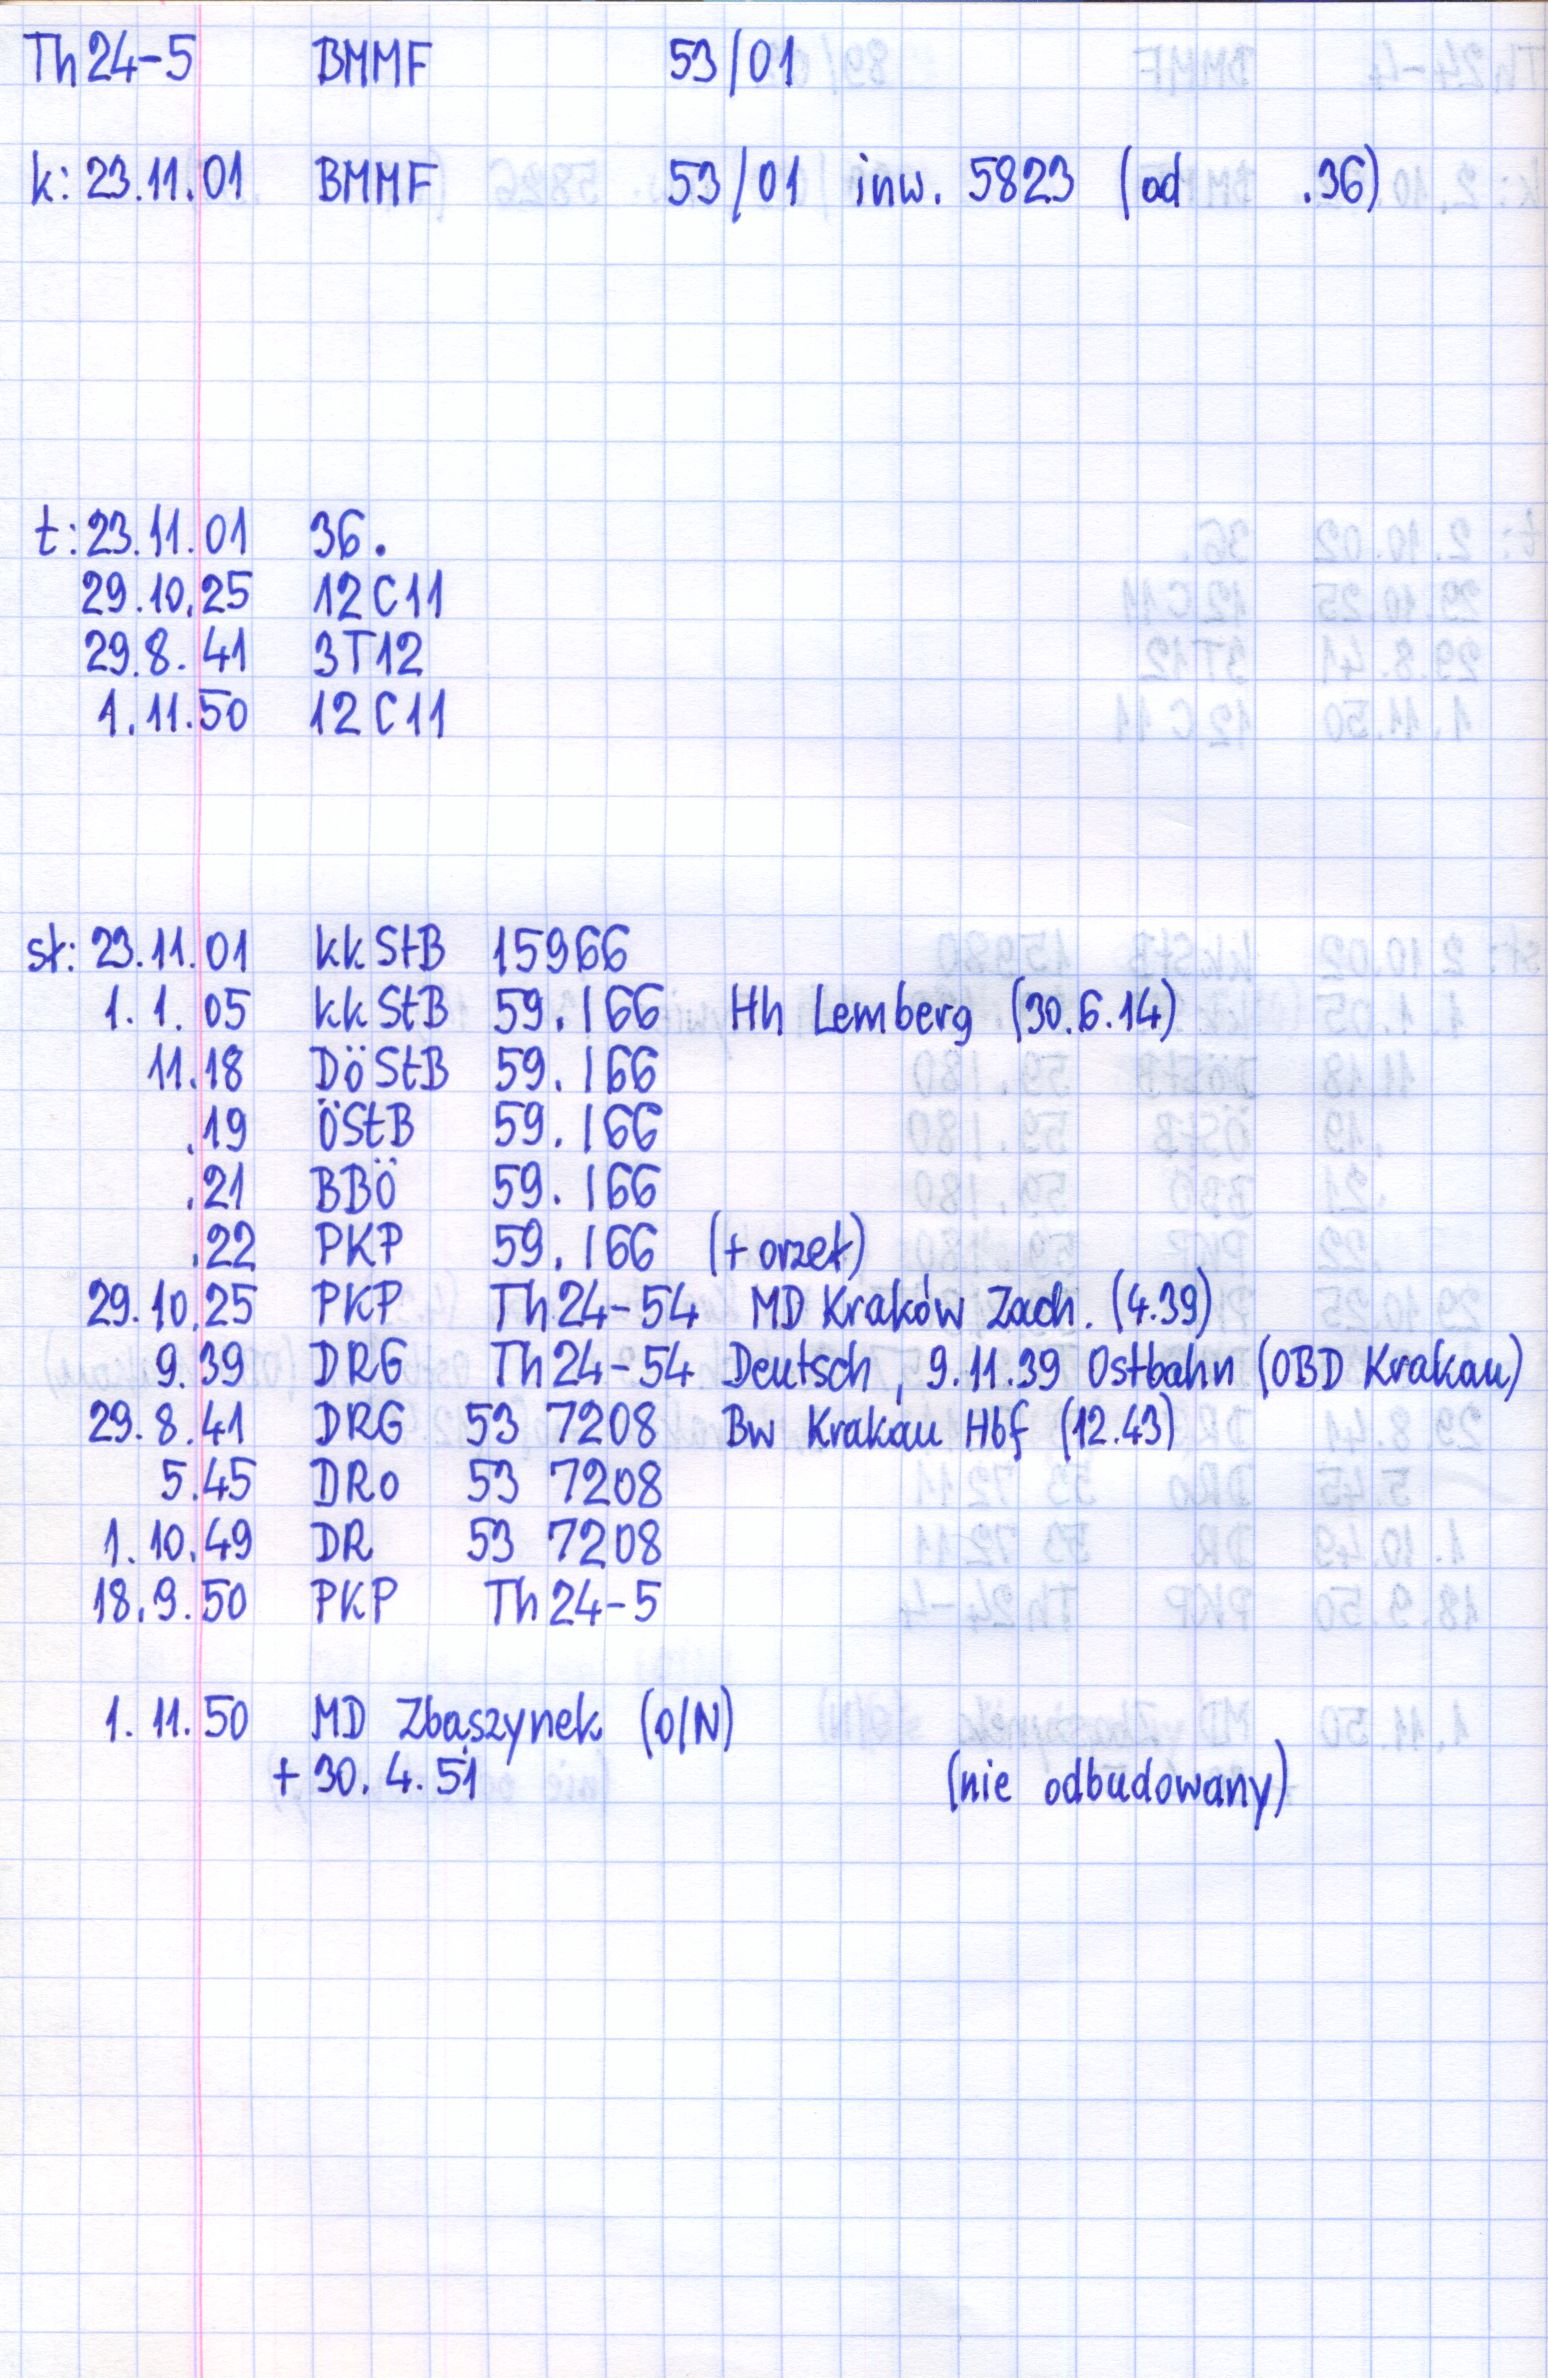 Th24-5 BMMF 53/01
k: 23.11.01 BMMF 53/01 inw. 5823 (od .36)
t: 23.11.01 36.
29.10.25 12C11
29.8.41 3T12
1.11.50 12C11
st: 23.11.01 kkStB 15966
1.1.05 kkStB 59.166 Hh Lemberg (30.6.14)
11.18 DöStB 59.166
.19 ÖStB 59.166
.21 BBÖ 59.166
.22 PKP 59.166 (+ orzeł)
29.10.25 PKP Th24-54 MD Kraków Zach. (4.39)
9.39 DRG Th24-54 Deutsch, 9.11.39 Ostbahn (OBD Krakau)
29.8.41 DRG 53 7208 Bw Krakau Hbf (12.43)
5.45 DRo 53 7208
1.10.49 DR 53 7208
18.9.50 PKP Th24-5
1.11.50 MD Zbąszynek (O/N)
+ 30.4.51 (nie odbudowany)